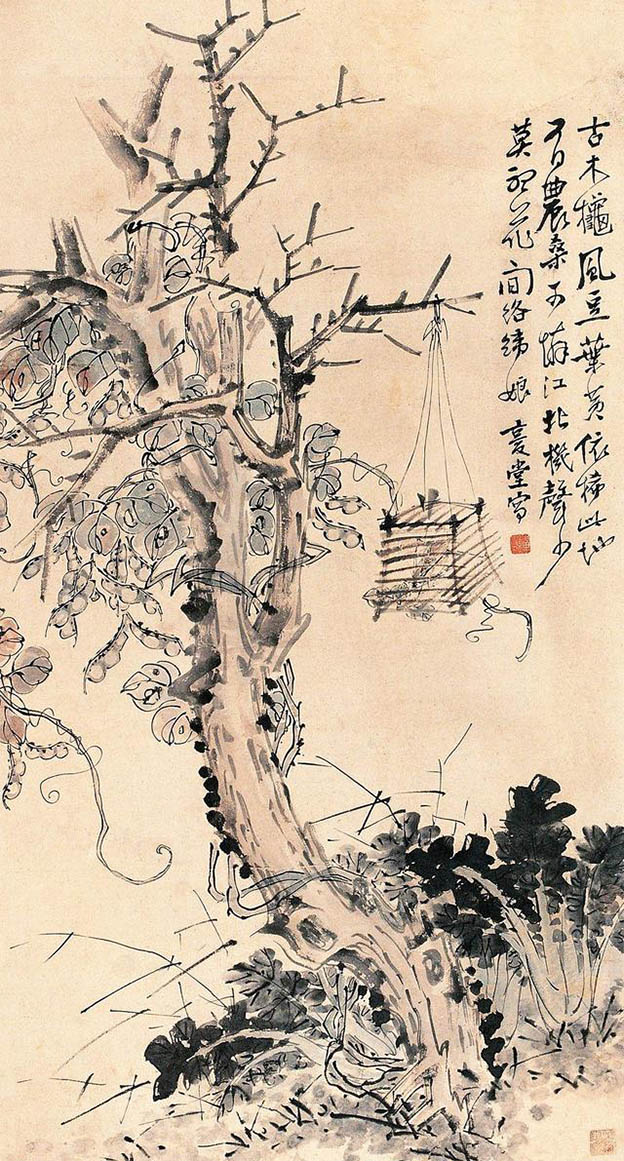 古木櫳風豆葉黃依稀此地
有農桑可憐江北機聲少
莫花間絡緯娘 复堂寫